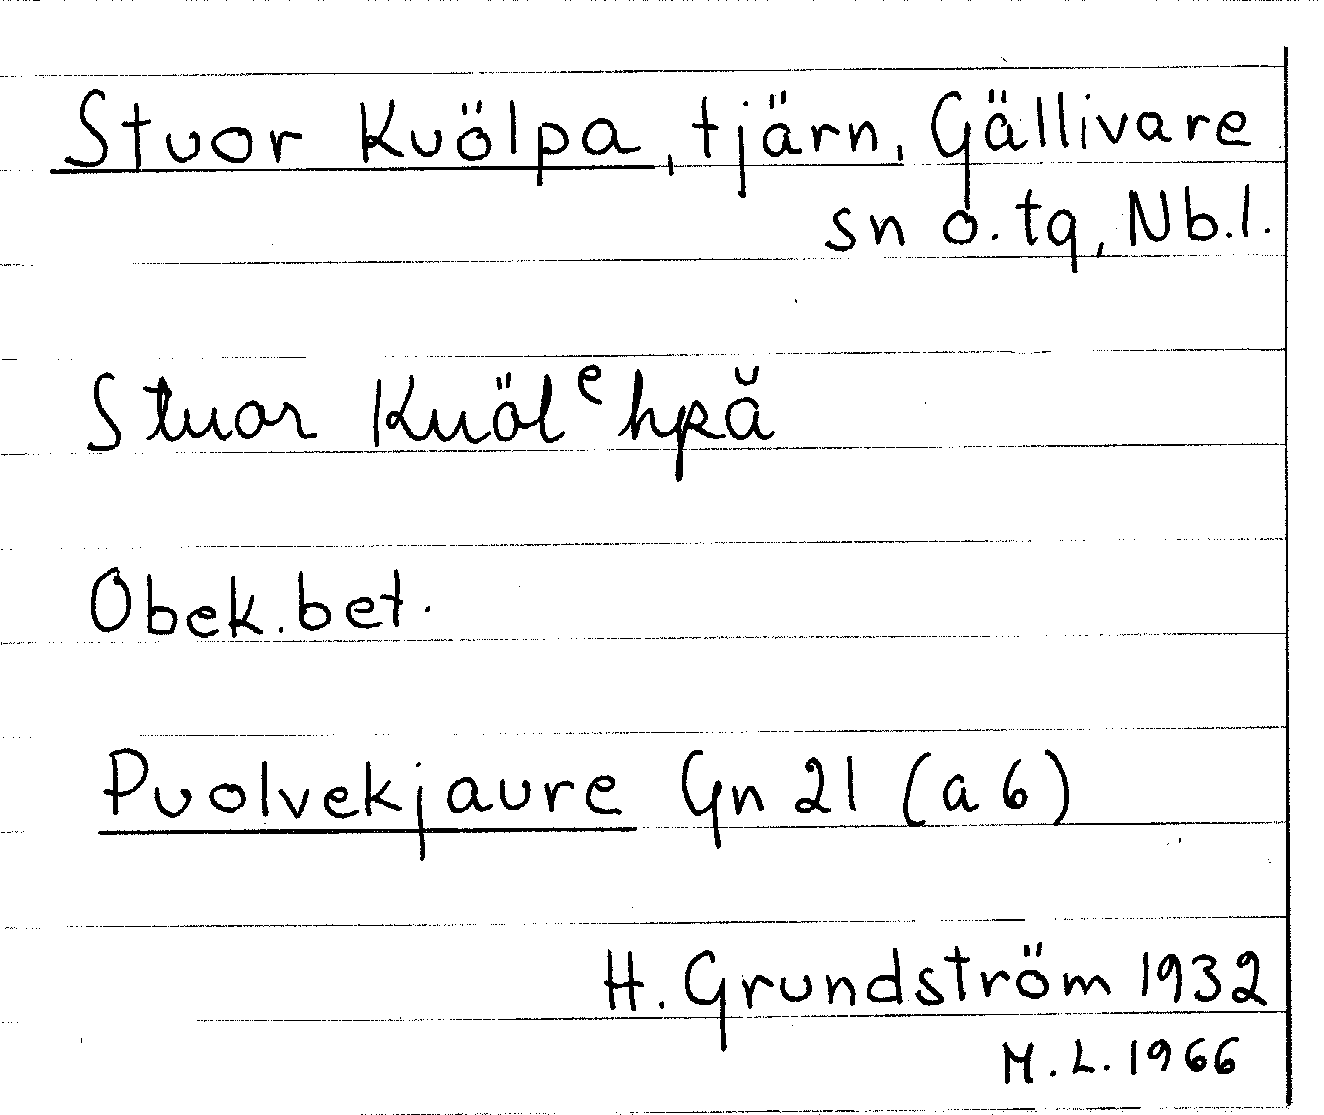 Stuor Kuölpa, tjärn, Gällivare
sn o. tg, Nb.l.
Stuor Kuölᵉhpā̆
Obek. bet.
Puolvekjaure Gn 21 (a 6)
H. Grundström 1932
M.L. 1966